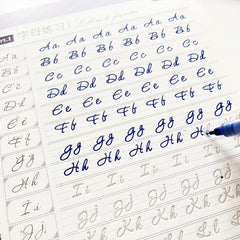 字母练习
Aa Aa Aa Aa Aa Aa Aa
Bb Bb Bb Bb Bb Bb Bb
Cc Cc Cc Cc Cc Cc Cc
Dd Dd Dd Dd Dd Dd Dd
Ee Ee Ee Ee Ee Ee Ee
Ff Ff Ff Ff Ff Ff Ff
Gg Gg Gg Gg Gg Gg Gg
Hh Hh Hh Hh Hh Hh H
Ii Ii Ii Ii Ii Ii
Jj Jj Jj Jj Jj Jj
Kk Kk Kk Kk